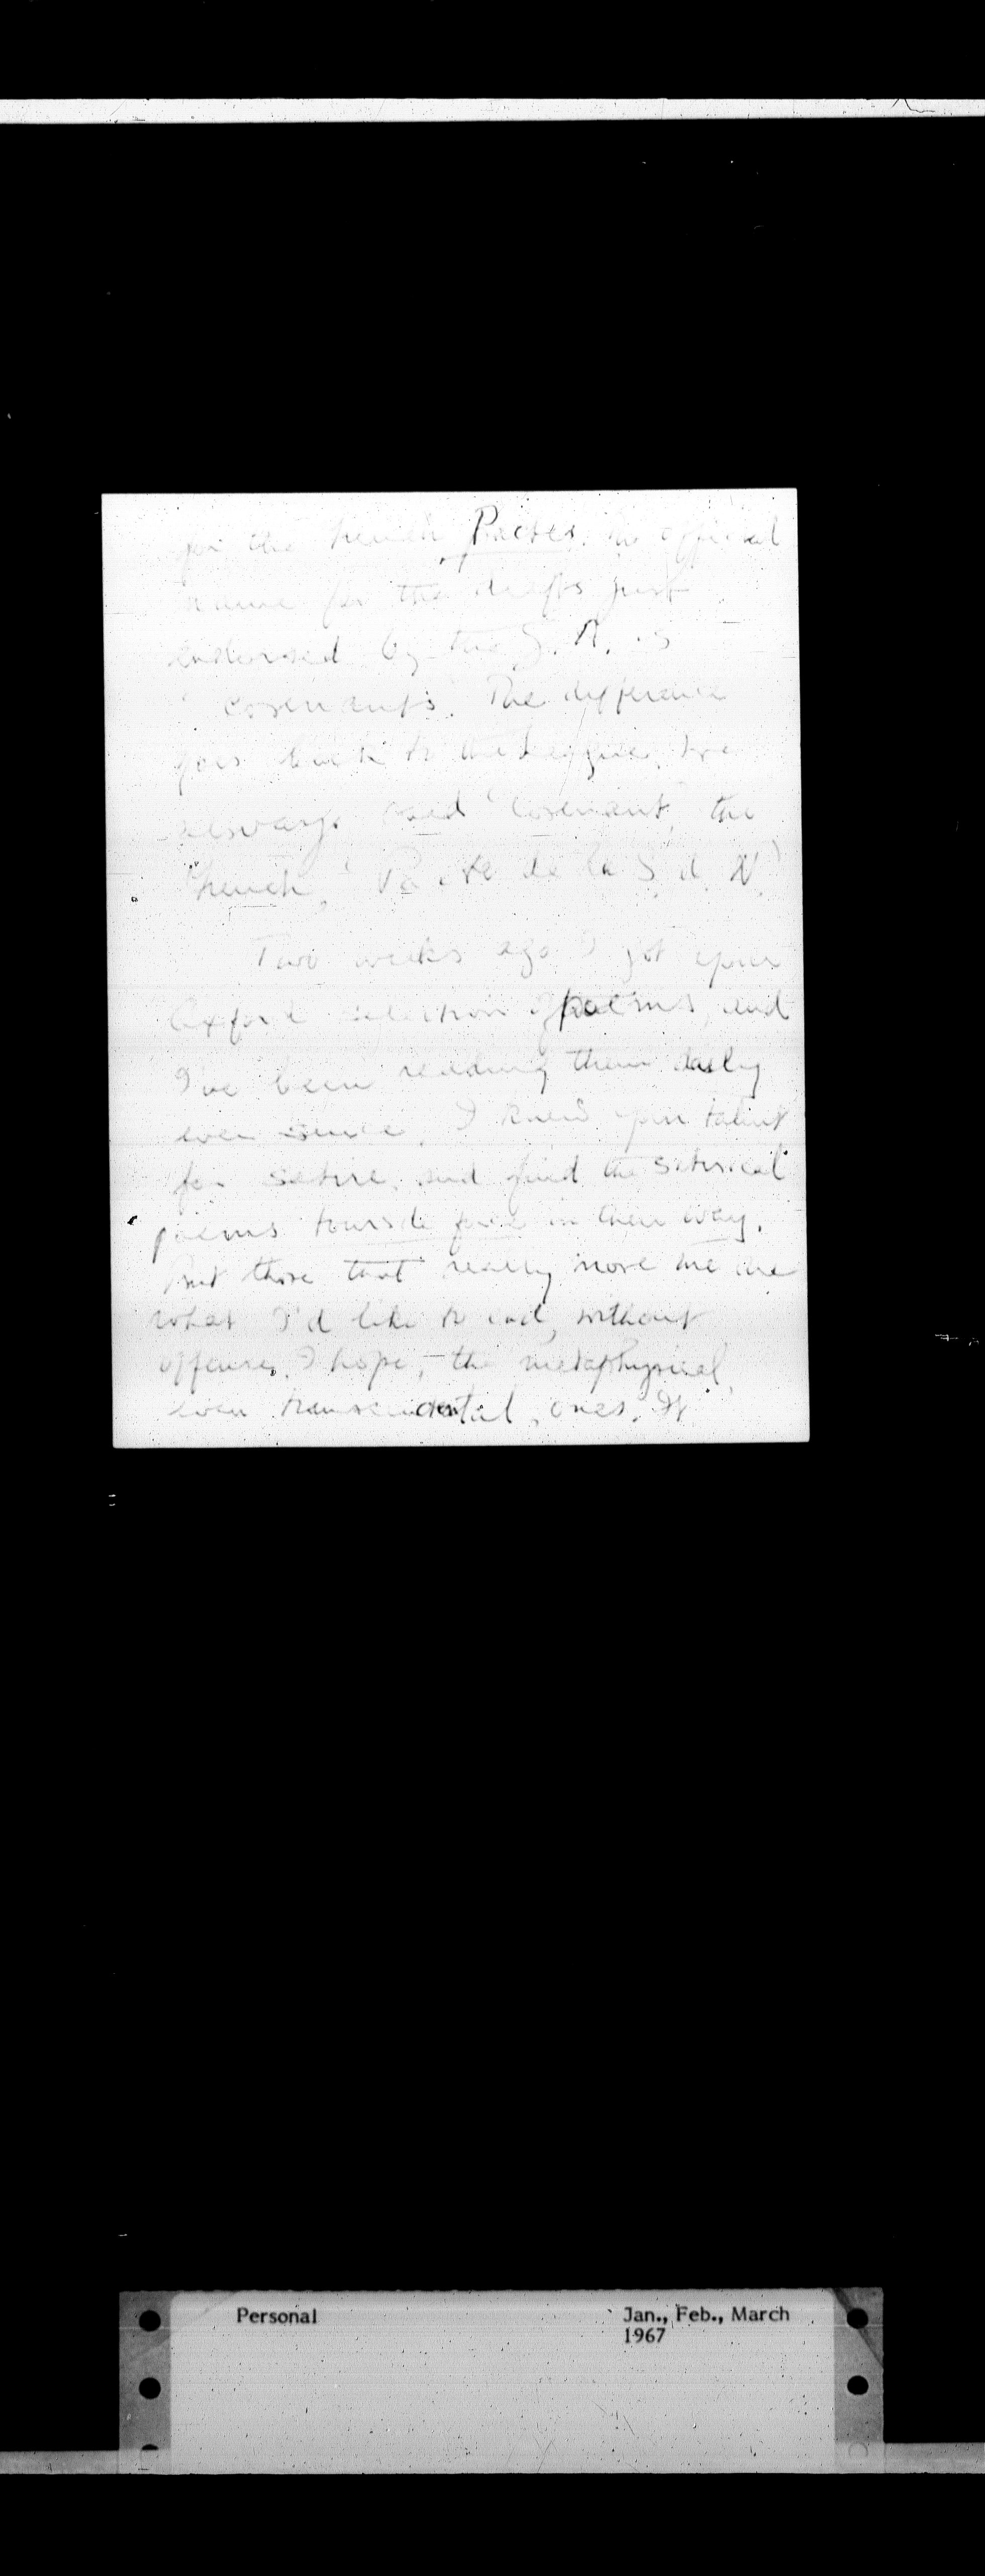 for the French Pactes. The official
name for the drafts just
endorsed by the G.A. is
'Covenants'. The difference
goes back to the League. We
always said 'Covenant', the
French, 'Pacte de la S.d.N.'
Two weeks ago I got your
Oxford selection of poems, and
I've been reading them daily
ever since. I knew your talent
for satire, and find the satirical
poems tours de force in their way.
But those that really move me are
what I'd like to call, without
offence, I hope, – the metaphysical,
even transcendental, ones. It
Personal
Jan., Feb., March
1967